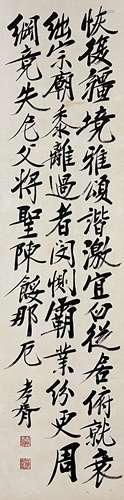 恢復疆境雅頌諧激宜臼徙居俯就衰
絀宗廟黍離過者閔惻霸業紛更周
綱竟失尼父將聖陳餒那厄
孝胥